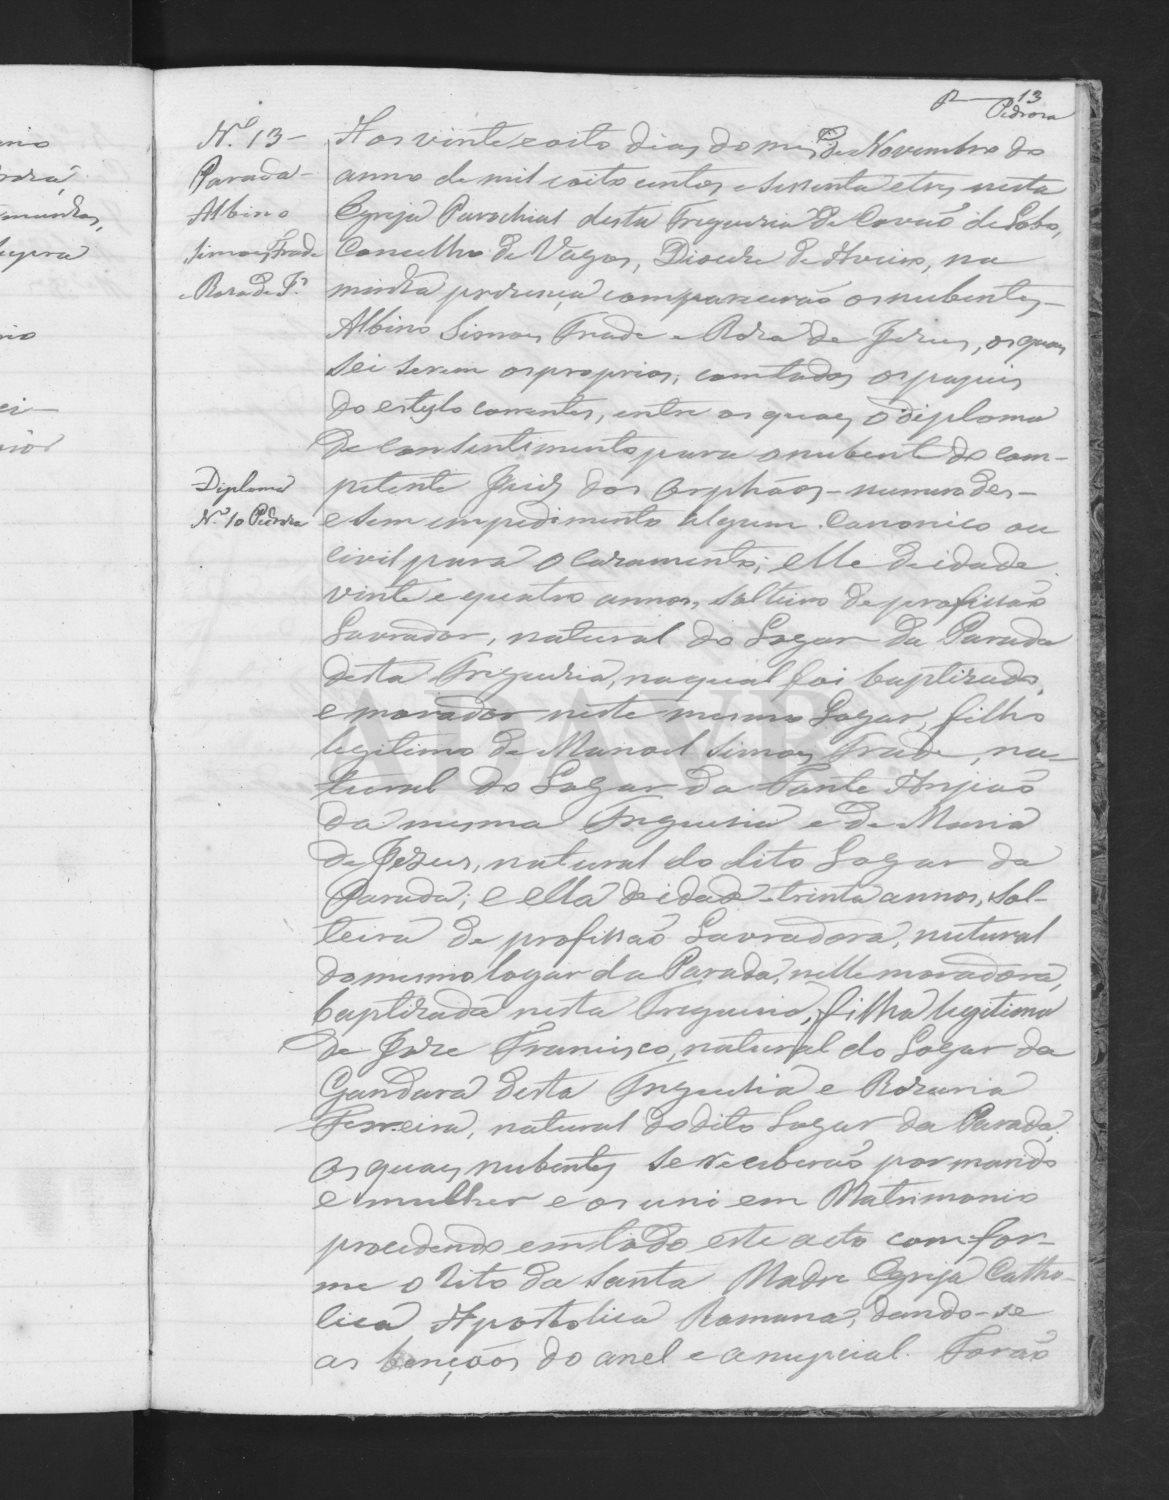 13
Pedroza
N.º 13-
Parada-
Albino
Simoes Frade
e Rosa de J.s
Diploma
N.º 10 Pedroza
Aos vinte e oito dias do mes de Novembro do
anno de mil e oito centos e sessenta e tres nesta
Egreja Parochial desta Freguezia de Covaõ de Lobo,
Concelho de Vagos, Dioceze de Aveiro, na
minha prezença compareceraõ os nubentes-
Albino Simoes Frade e Roza de Jezus, os quaes
sei serem os proprios, com todos os papeis
do estylo correntes, entre os quaes o diploma
de consentimento para o nubente do com-
petente Juiz dos Orphãos - numero des-
e sem impedimento algum canonico ou
civil para o cazamento; elle de idade
vinte e quatro annos, solteiro de profissaõ
Lavrador, natural do Logar da Parada
desta Freguezia, na qual foi baptizado,
e morador neste mesmo Logar, filho
legitimo de Manoel Simoes Frade, na-
tural do Logar da Fonte Anjaõ
da mesma Freguezia e de Maria
de Jezus, natural do dito Logar da
Parada; e ella de idade trinta annos, Sol-
teira de profissaõ Lavradora, natural
do mesmo logar da Parada, nelle moradora,
baptizada nesta Freguezia, filha legitima
de Joze Francisco, natural do Logar da
Gandara desta Freguezia e Rozaria
Ferreira, natural do dito Logar da Parada,
os quaes nubentes se receberaõ por marido
e mulher e os uni em Matrimonio
procedendo em todo este acto comfor-
me o Rito da Santa Madre Egreja Catho-
lica Apostolica Romana, dando-se
as bençoõs do anel e a nupcial. Foraõ
ADAVR